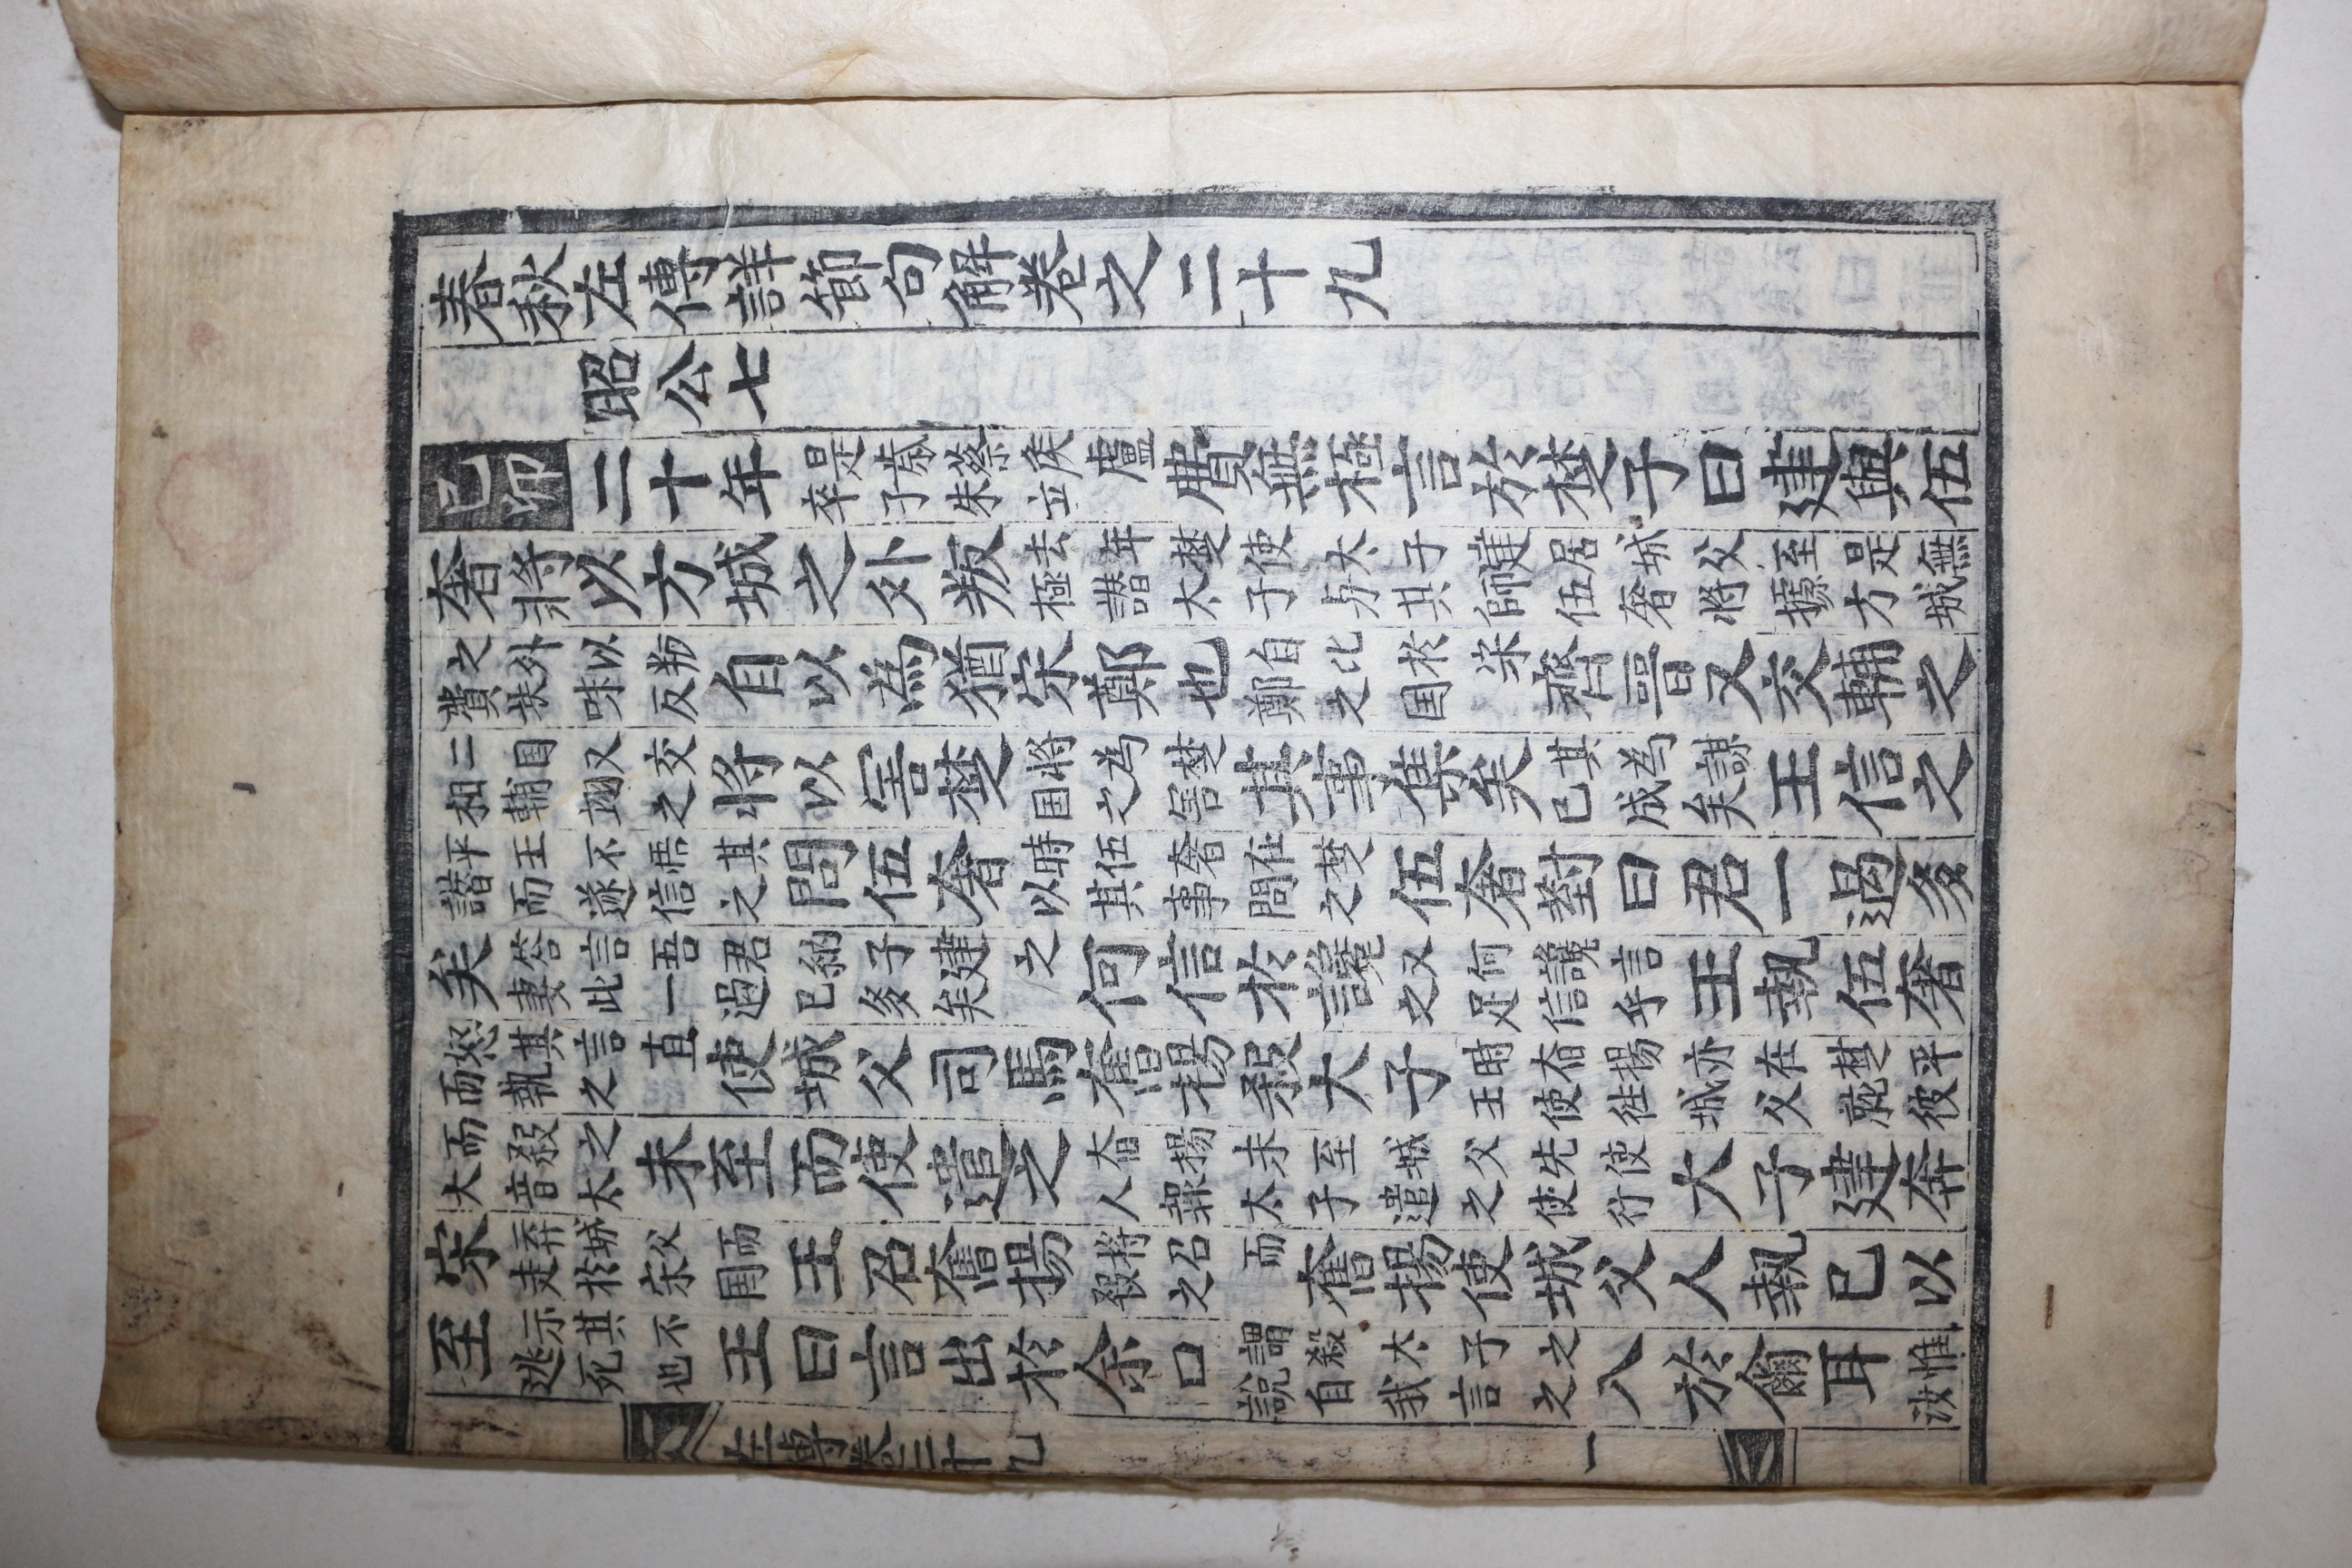 春秋左傳詳節句解卷之二十九
昭公七
己卯二十年是歲蔡侯盧卒子朱立費無極言於楚子曰建與伍
奢將以方城之外叛去年楚使太子建居城父至是無極譛太子与其師伍奢將據方城
之外以叛費扶味反自以為猶宋鄭也自比於宋鄭之国齊晉又交輔之
二国又交相輔翊之將以害楚將為楚国之害其事集矣其為謀已成矣王信之
平王不悟其譛而遂信之問伍奢時伍奢在楚以其事問之伍奢對曰君一過多
矣答言吾君納子建之妻此一過已多矣何信於讒又何讒言之足信乎王執伍奢
怒其言直而執之使城父司馬奮揚殺大子時奋揚亦在楚平王使徃城父就彼
而殺之大音太未至而使遣之奋揚未至城父先使人報太子遣之使行大子建奔
宋弃城父而走於宋国王召奮揚將召而殺之奮揚使城父人執已以
至示其不逃死也王曰言出於余口謂殺太子之說自我言之入於爾耳惟汝
左傳卷二十九 一